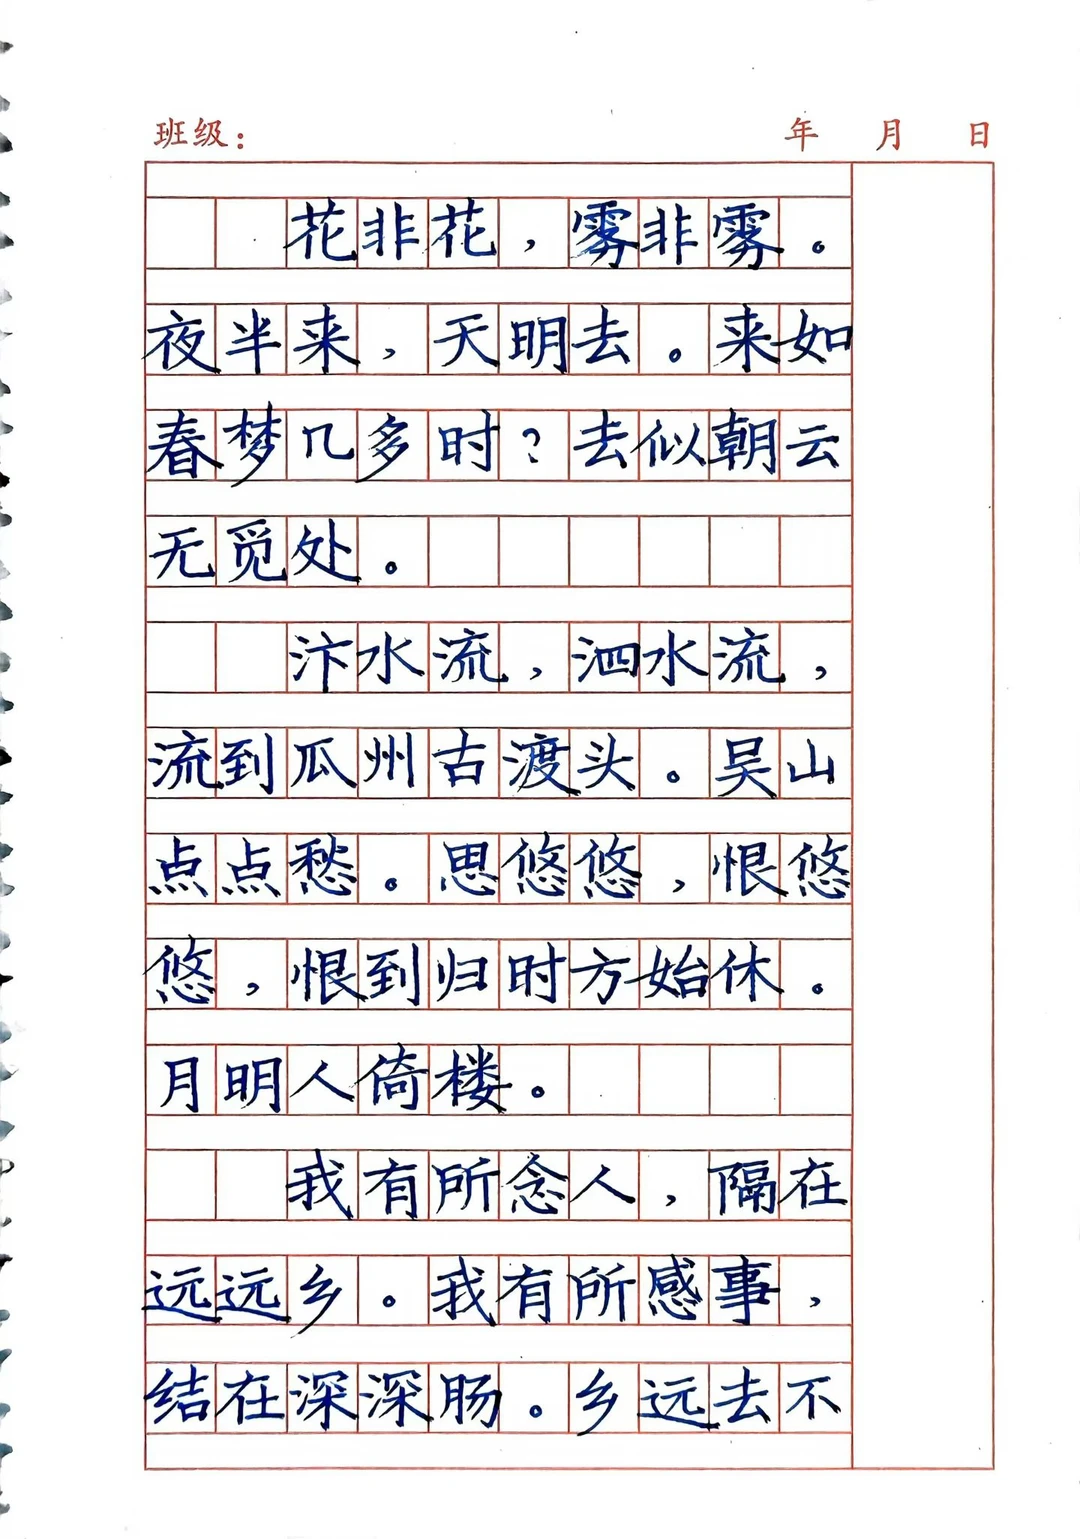 班级： 年 月 日
花非花，雾非雾。
夜半来，天明去。来如
春梦几多时？去似朝云
无觅处。
汴水流，泗水流，
流到瓜州古渡头。吴山
点点愁。思悠悠，恨悠
悠，恨到归时方始休。
月明人倚楼。
我有所念人，隔在
远远乡。我有所感事，
结在深深肠。乡远去不